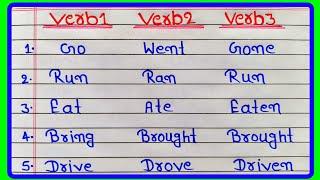 Verb1 Verb2 Verb3
1. Go Went Gone
2. Run Ran Run
3. Eat Ate Eaten
4. Bring Brought Brought
5. Drive Drove Driven